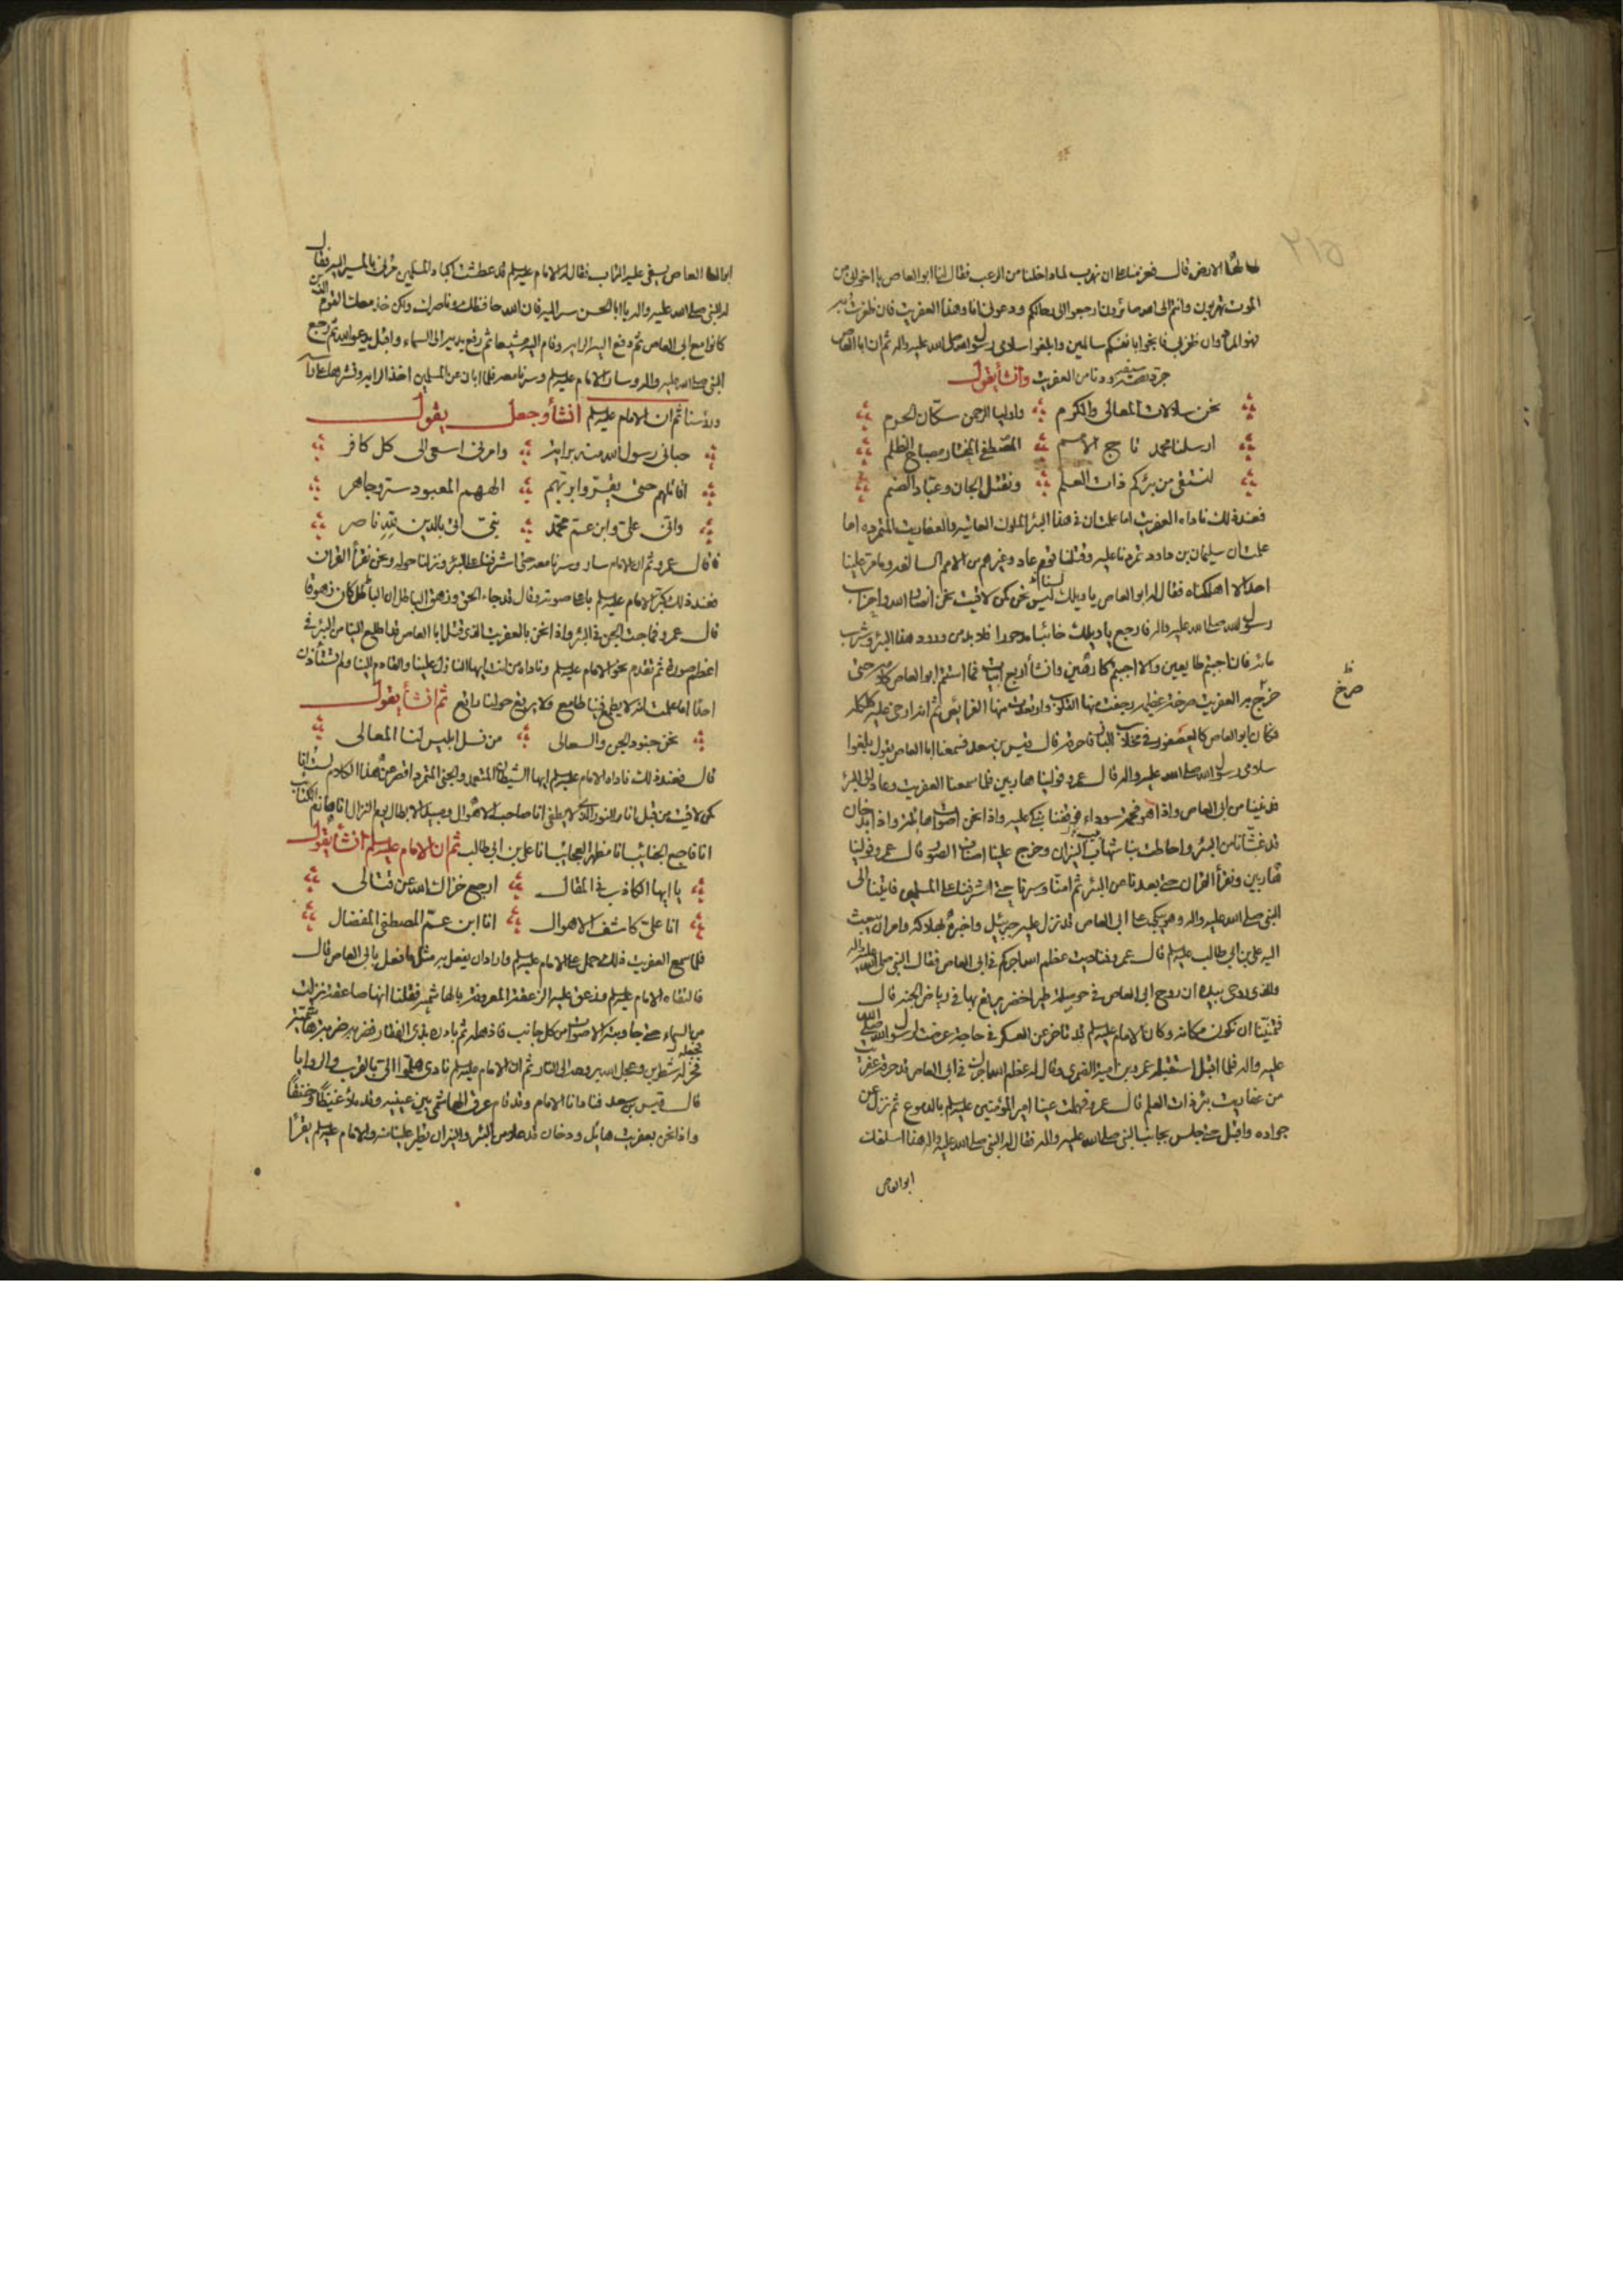 الارض قال فعزمنا على ان نهرب لما داخلنا من الرعب فقال لنا ابو العاص يا اخواني من
الموت تهربون وانتم الى الله صائرون ارجعوا الى رحالكم ودعوني انا وهذا العفريت فان ظفرت به
فهو المراد وان ظفر بي فانجوا بانفسكم سالمين وابلغوا سلامي رسول الله صلى الله عليه واله ثم ان ابا العاص
جرد سيفه ودنا من العفريت وانشأ يقول
نحن سلالات المعالي والكرم واوليا الرحمن سكان الحرم
ارسلنا محمد تاج الامم المصطفى المختار مصباح الظلم
لنستقي من بئركم ذات العلم ونقتل الجان وعباد الصنم
فعند ذلك ناداه العفريت اما علمت ان في هذا البئر الملوك العاتيه والعفاريت المتمرده اما
علمت ان سليمان بن داود تمردنا عليه وقتلنا قوم عاد وغيرهم من الامم السالفه وما مر علينا
احد الا اهلكناه فقال له ابو العاص يا ويلك ليس نحن كمن لاقيت نحن انصار الله واحزاب
رسول الله صلى الله عليه واله فارجع يا ويلك خائبا مدحورا فلا بد من ورود هذا البئر وشرب
مائه فان اجبتم طايعين والا اجبتم كارهين وانشأ اربع ابيات فما استتم ابو العاص كلامه حتى
صرخ
خرج به العفريت صرخة عظيمه رجفت منها القلوب وارتعدت منها الفرائص ثم انه ارمى عليه كلكله
فكان ابو العاص كالعصفور في مخلاب البازي فاحرقه قال قيس بن سعد فسمعنا ابا العاص يقول بلغوا
سلامي رسول الله صلى الله عليه واله قال عمرو فولينا هاربين فلما سمعنا العفريت وعاد الى البئر
قد غينا من ابي العاص واذا هو فحمة سوداء فوقفنا نبكي عليه واذا نحن اصوات هائله واذا بدخان
قد غشانا من البئر واحاطت بنا شهاب النيران وخرج علينا اصناف الصور قال عمرو فولينا
هاربين ونقرأ القران حتى بعدنا من البئر ثم امنا وسرنا حتى اشرفنا على المسلمين فاتينا الى
النبي صلى الله عليه واله وهو يبكي على ابي العاص قد نزل عليه جبرئيل واخبره بهلاكه وامر ان يبعث
اليه علي بن ابي طالب عليه السلم قال عمرو فناديت عظم الله اجركم في ابي العاص فقال النبي صلى الله عليه واله
والذي روحي بيده ان روح ابي العاص في حوصلة طير اخضر يرتع بها في رياض الجنه قال
فتمنينا ان نكون مكانه وكان الامام عليه السلم قد تاخر عن العسكر في حاجة عرضت لرسول الله صلى الله
عليه واله فلما اقبل استقبله عمرو بن امية الضمري وقال له عظم الله اجرك في ابي العاص قد حرقه عفريت
من عفاريت بئر ذات العلم قال عمرو فهملت عينا امير المؤمنين عليه السلم بالدموع ثم نزل عن
جواده واقبل حتى جلس بجانب النبي صلى الله عليه واله فقال له النبي صلى الله عليه واله هذا اسلفك
ابو العاص
ابو العاص يسقى عليه التراب فقال له الامام عليه السلم قد عطشت اكباد المسلمين مرني بالمسير اليه فقال
له النبي صلى الله عليه واله يا ابا الحسن سر اليه فان الله حافظك وناصرك ولكن خذ معك القوم الذين
كانوا مع ابي العاص ثم دفع اليه الرايه وقام اليه مشيعا ثم رفع يديه الى السماء واقبل يدعو الله ثم رجع
النبي صلى الله عليه واله وسار الامام عليه السلم وسرنا معه فلما ابان عن المسلمين اخذ الرايه ونشرها على
رؤسنا ثم ان الامام عليه السلم انشأ وجعل يقول
حباني رسول الله منه براية وامرني اسعى الى كل كافر
اقاتلهم حتى يقروا بربهم الههم المعبود سر وجاهر
واني علي وابن عم محمد نبي اتى بالدين لله ناصر
قال عمرو ثم ان الامام سار وسرنا معه حتى اشرفنا على البئر ونزلنا حوله ونحن نقرأ القران
فعند ذلك كبر الامام عليه السلم باعلا صوته وقال قد جاء الحق وزهق الباطل ان الباطل كان زهوقا
قال عمرو فماجت الجن في البئر واذا نحن بالعفريت الذي قتل ابا العاص قد اطلع الينا من البئر في
اعظم صورة ثم تقدم نحو الامام عليه السلم وناداه من انت ايها النازل علينا والقادم الينا ولم تستأذن
احدا اما علمت انه لا يطمع فينا طامع ولا يرتع حولنا راتع ثم انشأ يقول
نحن جنود الجن والسعالى من نسل ابليس لنا المعالى
قال فعند ذلك ناداه الامام عليه السلم ايها الشيطان المتعمد والجني المتمرد اقصر عن هذا الكلام لست انا
كمن لاقيت من قبل انا والنور الذي لا يطفى انا صاحب الاهوال ومبيد الابطال يوم النزال انا هازم الكتائب
انا مظهر العجائب انا علي بن ابي طالب ثم ان الامام عليه السلم انشأ يقول
يا ايها الكاذب في المقال ارجع خزاك الله عن قتالى
انا علي كاشف الاهوال انا ابن عم المصطفى المفضال
فلما سمع العفريت ذلك حمل على الامام عليه السلم واراد ان يفعل به مثل ما فعل بابي العاص قال
فالتقاه الامام عليه السلم وزعق عليه الزعقة المعروفة بالهاشميه فقلنا انها صاعقة نزلت
من السماء حتى جاوبته الاصوات من كل جانب فاذهله ثم بادره بذي الفقار فضربه ضربة هاشمية
فجزله شطرين وعجل الله بروحه الى النار ثم ان الامام عليه السلم نادى هلموا الي بالقرب والروايا
قال قيس بن سعد فنادانا الامام وقد قام عرق الهاشمي بين عينيه وقد ملأ غيظا وحنقا
واذا نحن بعفريت هايل ودخان قد علا من البئر والنيران يطير علينا منه والامام عليه السلم يقرأ